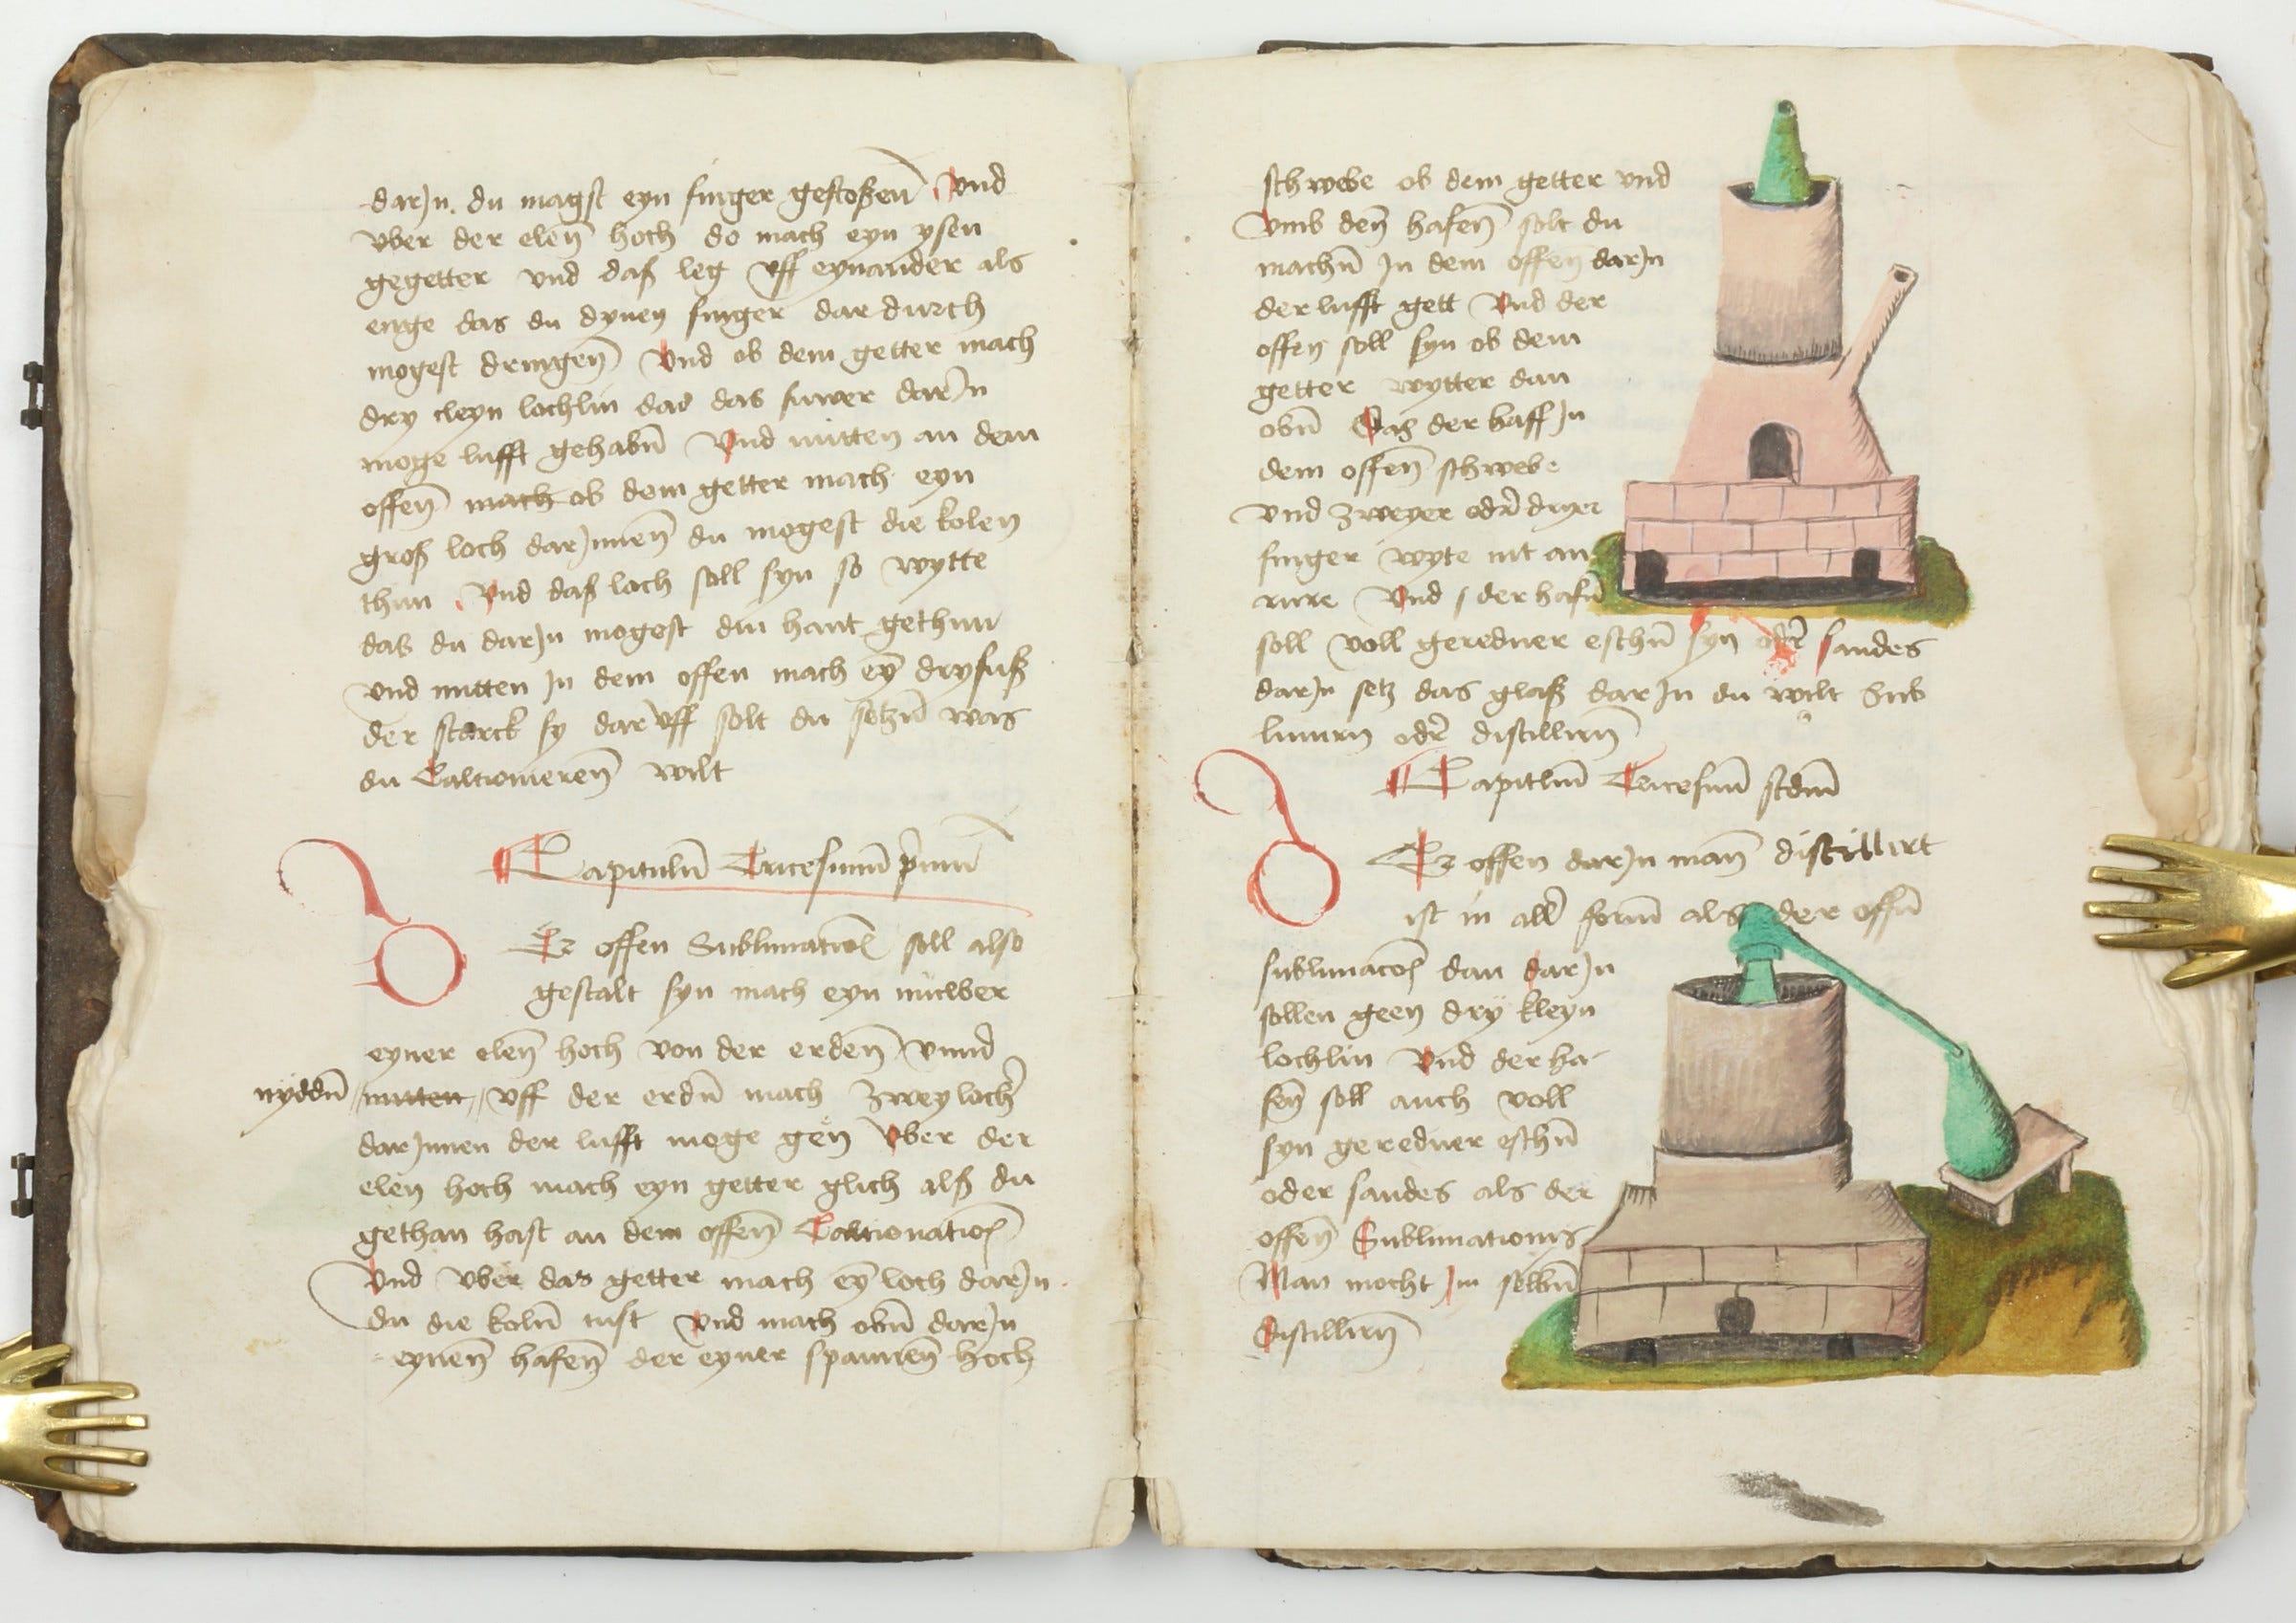 darJn. du magst eyn finger gestoßen̄ Vnd
vber der elen̄ hoch do mach eyn ysen
gegetter vnd daß leg vff eynander als
enge das du dynen finger dar durch
mogest dringen̄ Vnd ob dem getter mach
dry cleyn lochlin das das fuwer darJn
moge lufft gehabn̄ Vnd mitten an dem
offen̄ mach ob dem getter mach eyn
groß loch darJnnen̄ du mogest die kolen
thun Vnd daß loch soll syn so wytte
das du darJn mogest din hant gethun
vnd mitten Jn dem offen mach eȳ dryfuß
der starck sy dar vff solt du setzn̄ was
du Calcioneren̄ wilt
Capitulū Tricesimū p̄mū
Er offen Sublimatiōꝭ soll also
gestalt syn mach eyn muwer
eyner elen̄ hoch von der erden̄ vnnd
nyddn̄ mitten vff der erdn̄ mach zwey loch̄
darJnnen der lufft moge gen̄ Vber der
elen hoch mach eyn getter glich alß du
gethan hast an dem offen̄ Calcionatioꝭ
Vnd vber das getter mach eȳ loch darJn
du die koln̄ tust Vnd mach obn̄ darJn
eynen̄ hafen̄ der eyner spannen̄ hoch
schwebe ob dem getter vnd
vmb den̄ hafen̄ solt du
machn̄ Jn dem offen darJn
der lufft gett Vnd der
offen soll syn ob dem
getter wytter dan
obn̄ Das der haff Jn
dem offen̄ schwebe
vnd zweyer odr̄ dryer
finger wyte nit an
rure Vnd / der hafn̄
soll voll geredner eschn̄ syn odr̄ sandes
darJn setz das glaß dar Jn du wilt Sub
limirn odr̄ distillirn̄
Capitlūm Tricesimū scdm̄
Er offen darJn man̄ distillirt
ist in all̄ form̄ als der offn̄
sublimacōꝭ dan darJn
sollen geen dry kleyn
lochlin Vnd der ha-
fen̄ soll auch voll
syn geredner eschn̄
oder sandes als der
offen̄ Sublimationis
Man mocht Jm selbn̄
Distillirn̄